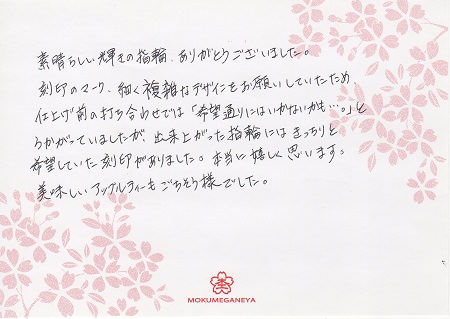 素晴らしい輝きの指輪、ありがとうございました。
刻印のマーク、細く複雑なデザインをお願いしていたため、
仕上げ前の打ち合わせでは「希望通りにはいかないかも…。」と
うかがっていましたが、出来上がった指輪にはきっちりと
希望していた刻印がありました。本当に嬉しく思います。
美味しいアップルティーもごちそう様でした。
MOKUMEGANEYA